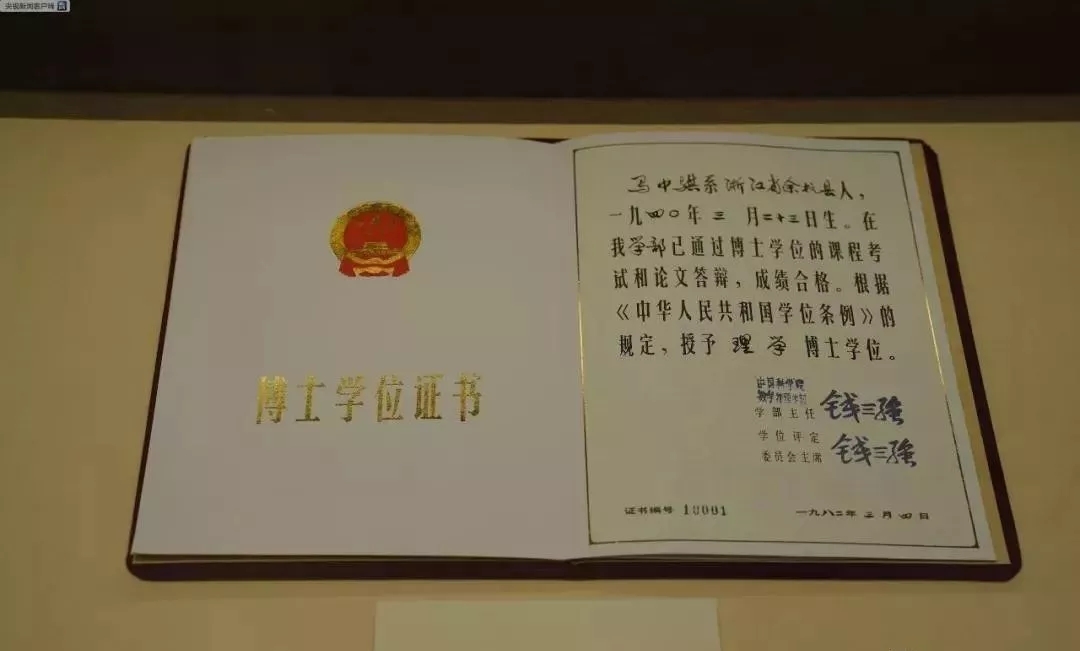 央视新闻客户端
博士学位证书
马中骐系浙江省余杭县人，
一九四〇年三月二十三日生。在
我学部已通过博士学位的课程考
试和论文答辩，成绩合格。根据
《中华人民共和国学位条例》的
规定，授予理学博士学位。
中国科学院
数学物理学部
学部主任 钱三强
学位评定
委员会主席 钱三强
证书编号 10001
一九八二年三月四日